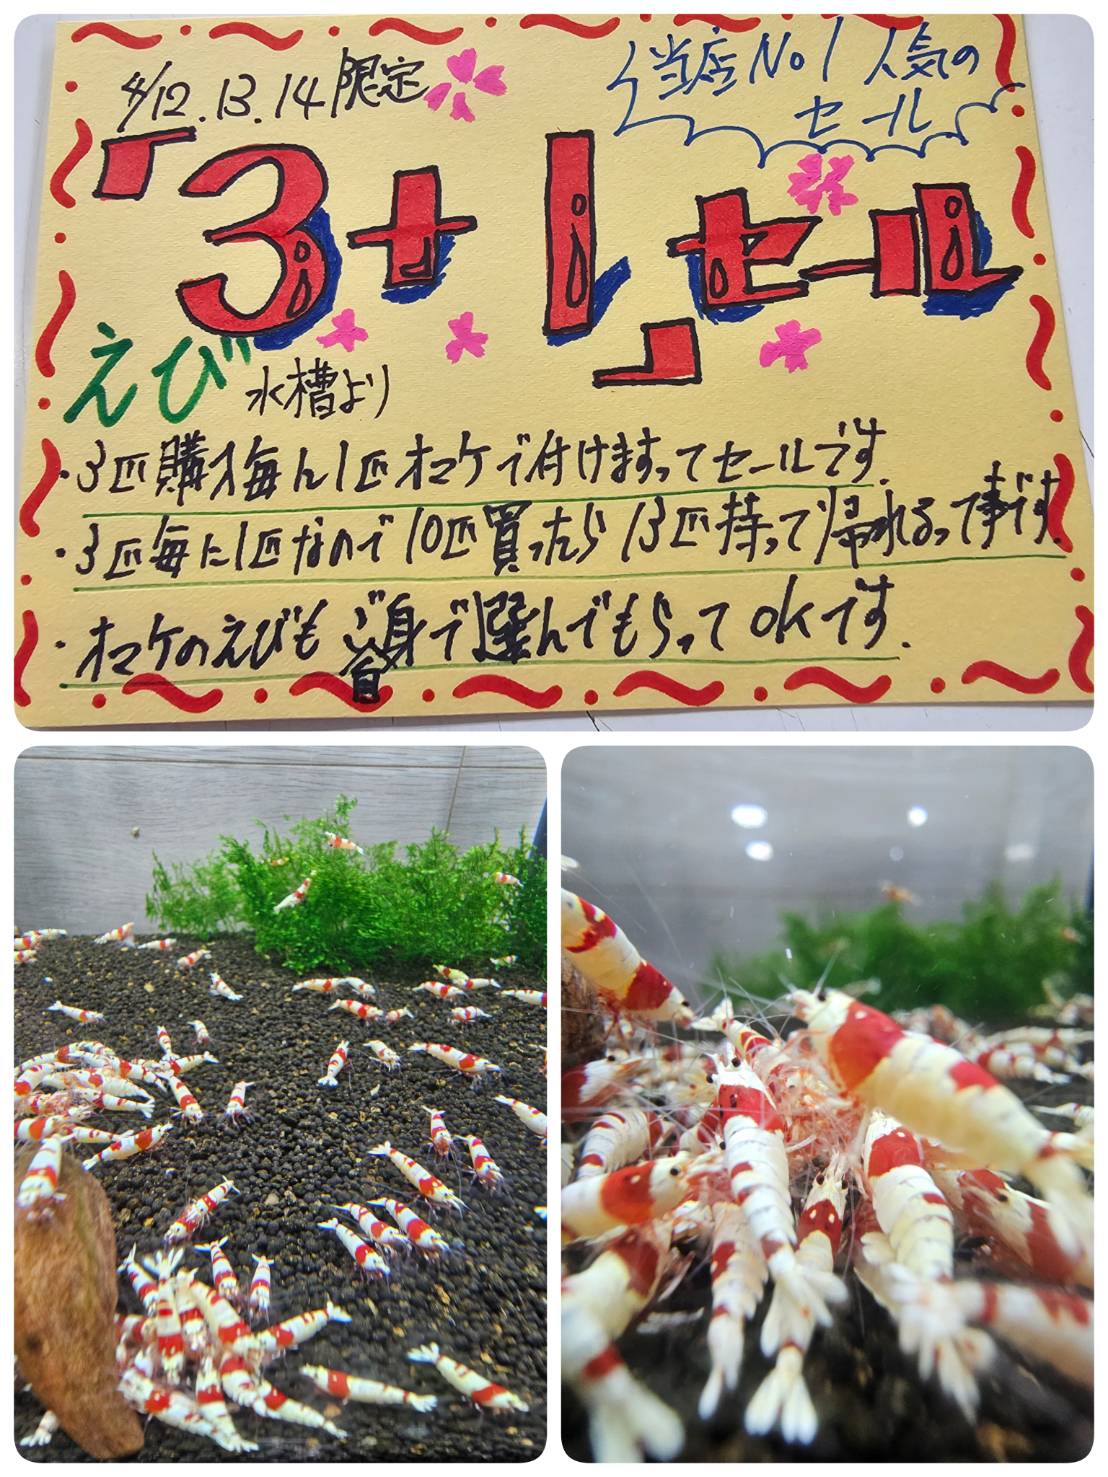 4/12.13.14限定
当店No1人気の
セール
「3+1」セール
えび水槽より
・3匹購入毎に1匹オマケで付けますってセールです.
・3匹毎に1匹なので10匹買ったら13匹持って帰れるって事です.
・オマケのえびもご自身で選んでもらってOKです.